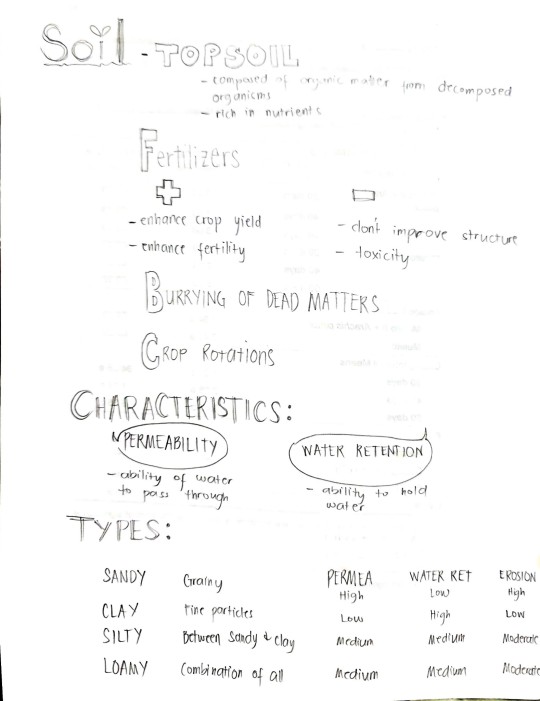 Soil - TOPSOIL
- composed of organic matter from decomposed
organisms
- rich in nutrients
Fertilizers
+ -
- enhance crop yield - don't improve structure
- enhance fertility - toxicity
BURRYING OF DEAD MATTERS
CROP ROTATIONS
CHARACTERISTICS:
PERMEABILITY WATER RETENTION
- ability of water - ability to hold
to pass through water
TYPES:
PERMEA WATER RET EROSION
SANDY Grainy High Low High
CLAY Fine particles Low High Low
SILTY Between Sandy & clay Medium Medium Moderate
LOAMY Combination of all Medium Medium Moderate